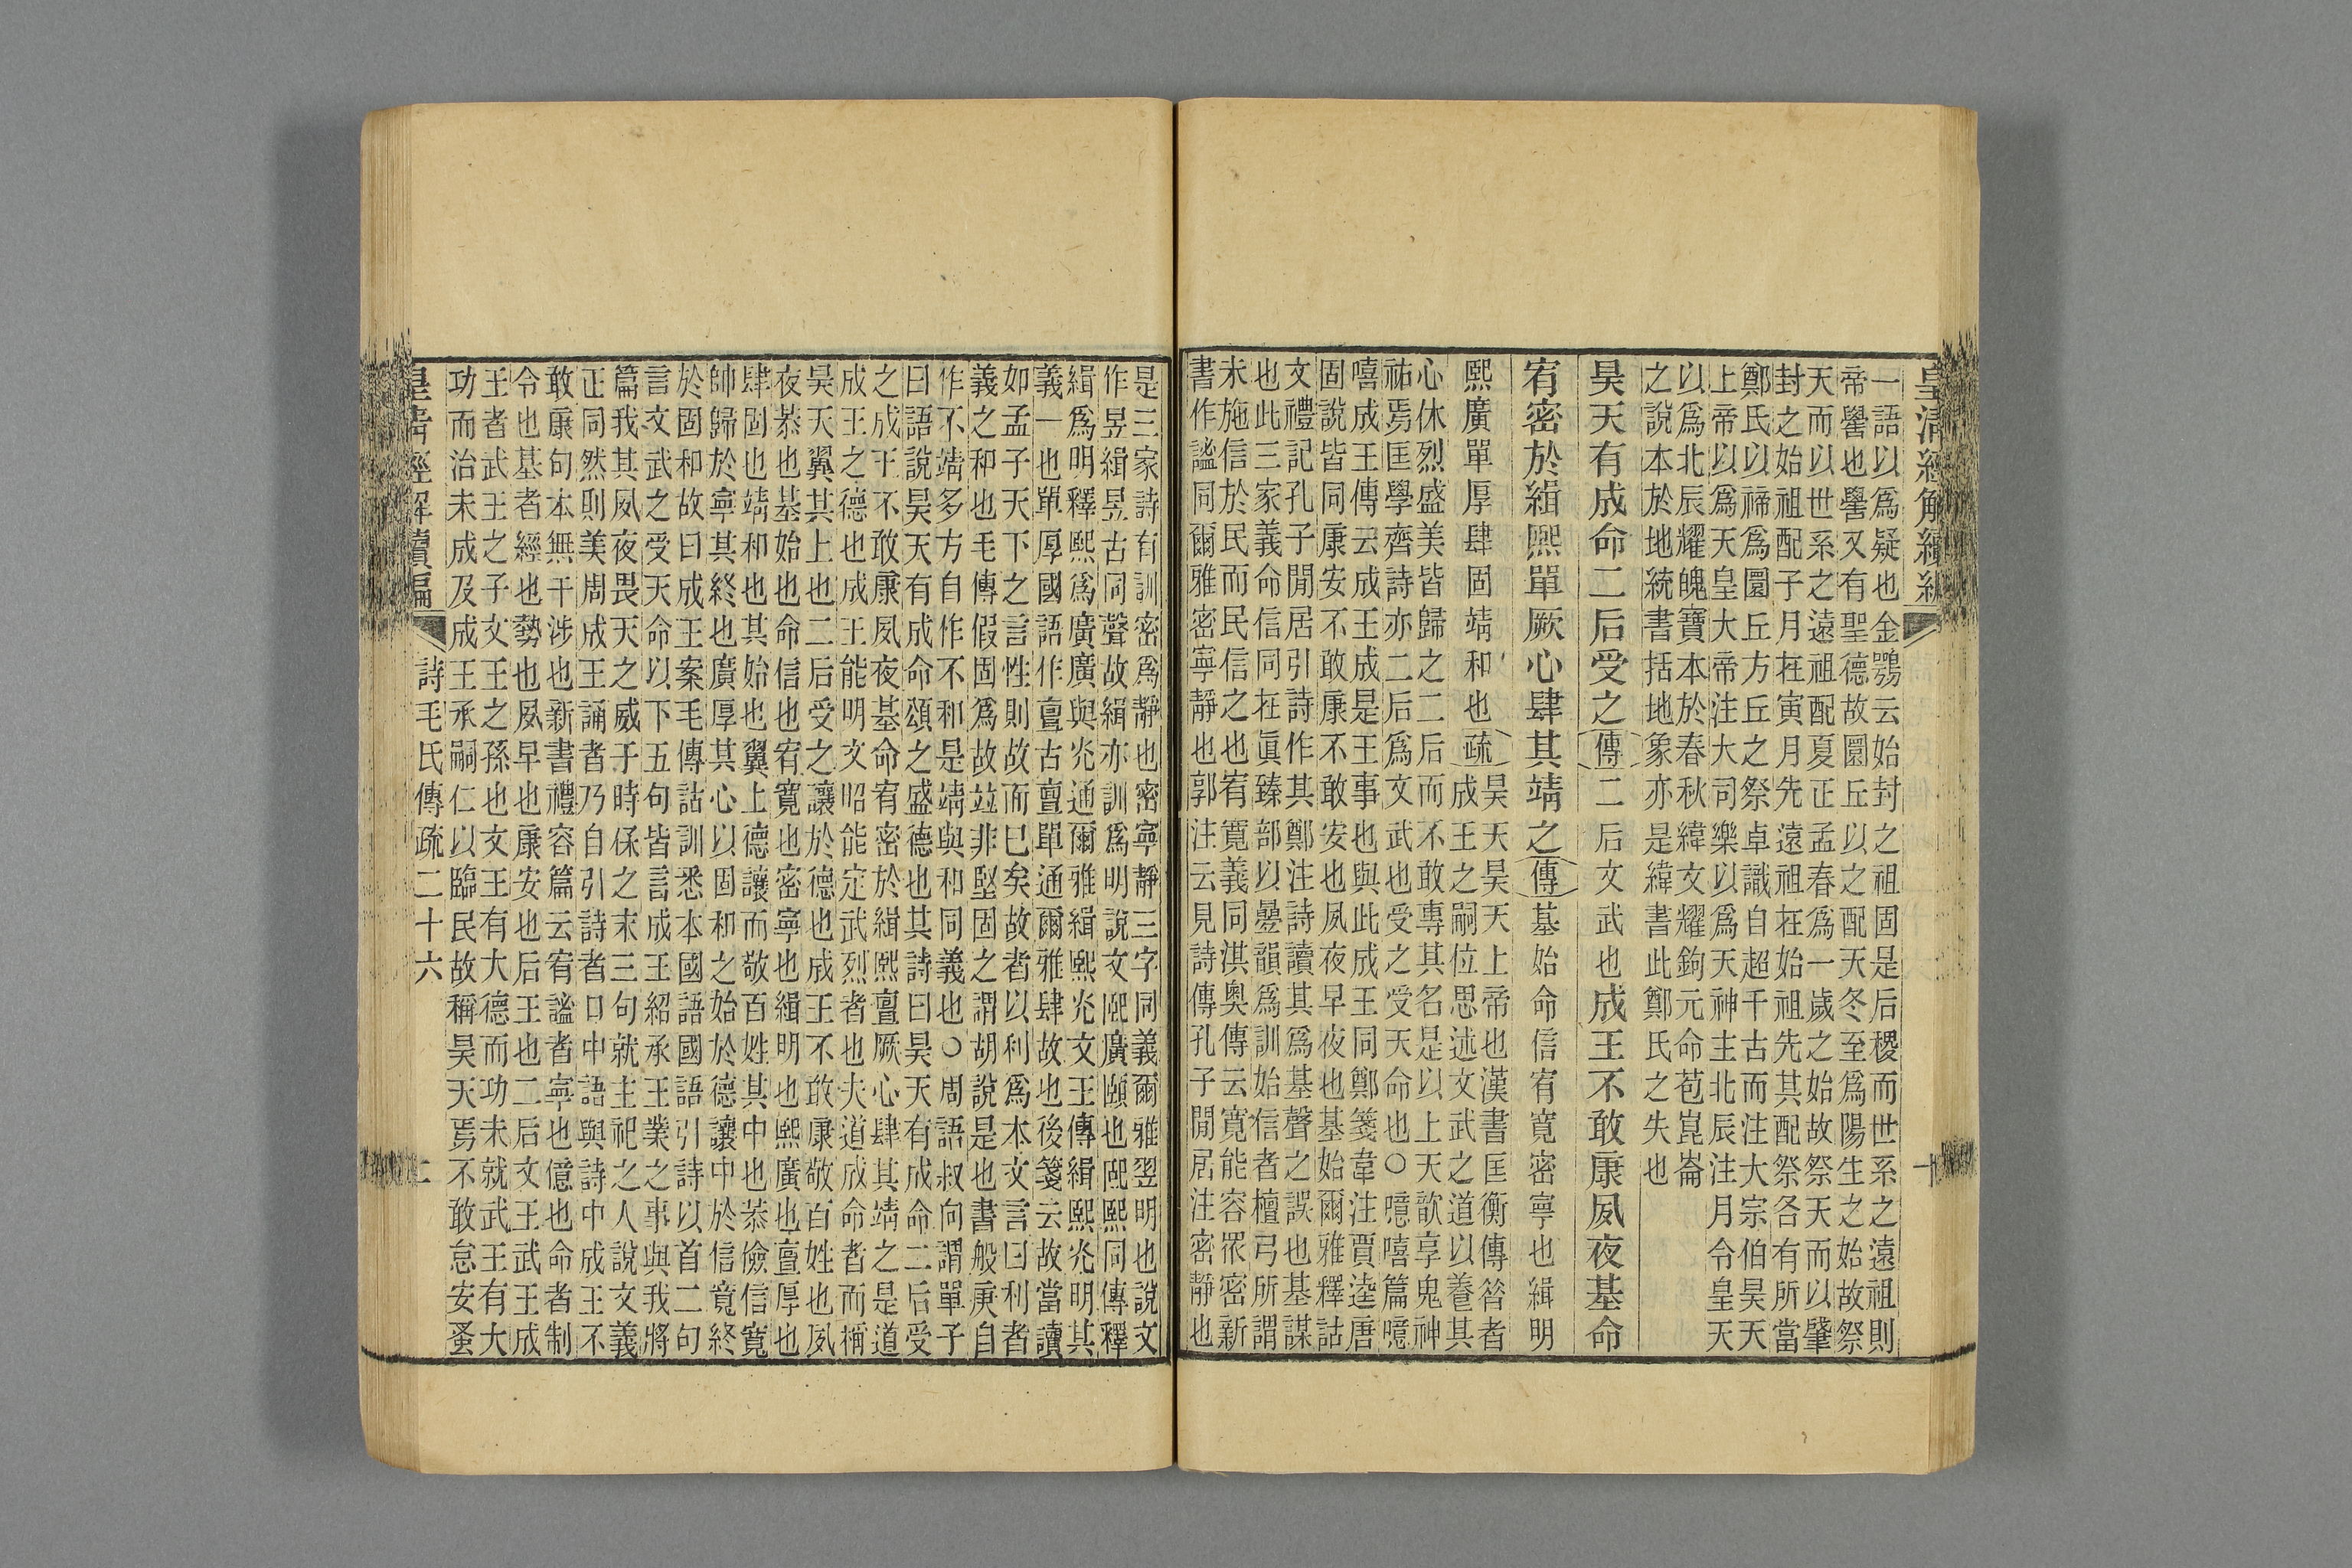 皇清經解續編
十
一語以爲疑也金鶚云始封之祖固是后稷而世系之遠祖則
帝嚳也嚳又有聖德故圜丘以之配天冬至爲陽生之始故祭
天而以世系之遠祖配夏正孟春爲一歲之始故祭天而以肇
封之始祖配子月在寅月先遠祖在始祖先其配祭各有所當
鄭氏以禘爲圜丘方丘之祭卓識自超千古而注大宗伯昊天
上帝以爲天皇大帝注大司樂以爲天神主北辰注月令皇天
以爲北辰耀魄寶本於春秋緯文耀鉤元命苞崑崙
之說本於地統書括地象亦是緯書此鄭氏之失也
昊天有成命二后受之傳二后文武也成王不敢康夙夜基命
宥密於緝熙單厥心肆其靖之傳基始命信宥寬密寧也緝明
熙廣單厚肆固靖和也疏
昊天昊天上帝也漢書匡衡傳昝者
成王之嗣位思述文武之道以養其
心休烈盛美皆歸之二后而不敢專其名是以上天歆享鬼神
祐焉匡學齊詩亦二后爲文武也受之受天命也○噫嘻篇噫
嘻成王傳云成王成是王事也與此成王同鄭箋韋注賈逵唐
固說皆同康安不敢康不敢安也夙夜早夜也基始爾雅釋詁
文禮記孔子閒居引詩作其鄭注詩讀其爲基聲之誤也基謀
也此三家義命信同在眞臻部以疊韻爲訓始信者檀弓所謂
未施信於民而民信之也宥寬義同淇奧傳云寬能容眾密新
書作謐同爾雅密寧靜也郭注云見詩傳孔子閒居注密靜也
是三家詩有訓密爲靜也密寧靜三字同義爾雅翌明也說文
作昱緝昱古同聲故緝亦訓爲明說文𤋮廣頤也𤋮熙同傳釋
緝爲明釋熙爲廣廣與光通爾雅緝熙光文王傳緝熙光明其
義一也單厚國語作亶古亶單通爾雅肆故也後箋云故當讀
如孟子天下之言性則故而已矣故者以利爲本文言曰利者
義之和也毛傳假固爲故竝非堅固之謂胡說是也書般庚自
作不靖多方自作不和是靖與和同義也○周語叔向謂單子
曰語說昊天有成命頌之盛德也其詩曰昊天有成命二后受
之成王不敢康夙夜基命宥密於緝熙亶厥心肆其靖之是道
成王之德也成王能明文昭能定武烈者也夫道成命者而稱
昊天翼其上也二后受之讓於德也成王不敢康敬百姓也夙
夜恭也基始也命信也宥寬也密寧也緝明也熙廣也亶厚也
肆固也靖和也其始也翼上德讓而敬百姓其中也恭儉信寬
帥歸於寧其終也廣厚其心以固和之始於德讓中於信寬終
於固和故曰成王案毛傳詁訓悉本國語國語引詩以首二句
言文武之受天命以下五句皆言成王紹承王業之事與我將
篇我其夙夜畏天之威于時保之末三句就主祀之人說文義
正同然則美周成王誦者乃自引詩者口中語與詩中成王不
敢康句本無干涉也新書禮容篇云宥謐者寧也億也命者制
令也基者經也勢也夙早也康安也后王也二后文王武王成
王者武王之子文王之孫也文王有大德而功未就武王有大
功而治未成及成王承嗣仁以臨民故稱昊天焉不敢怠安蚤
皇清經解續編
詩毛氏傳疏二十六